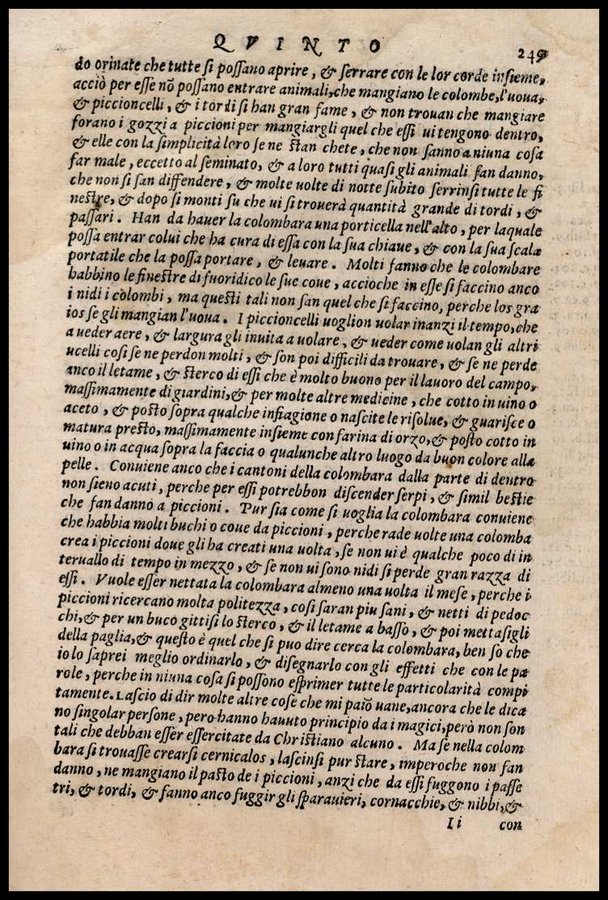 QVINTO 249
do orinate che tutte si possano aprire, & serrare con le lor corde insieme,
acciò per esse nõ possano entrare animali, che mangiano le colombe, l'uoua,
& piccioncelli, & i tordi si han gran fame, & non trouan che mangiare
forano i gozzi a piccioni per mangiargli quel che essi ui tengono dentro,
& elle con la simplicità loro se ne stan chete, che non fanno a niuna cosa
far male, eccetto al seminato, & a loro tutti quasi gli animali fan danno,
che non si san diffendere, & molte uolte di notte subito serrinsi tutte le fi
nestre, & dopo si monti su che ui si trouerà quantità grande di tordi, &
passari. Han da hauer la colombara una porticella nell'alto, per laquale
possa entrar colui che ha cura di essa con la sua chiaue, & con la sua scala
portatile che la possa portare, & leuare. Molti fanno che le colombare
habbino le finestre di fuori dico le sue coue, accioche in esse si faccino anco
i nidi i colombi, ma questi tali non san quel che si faccino, perche los gra
ios se gli mangian l'uoua. I piccioncelli uoglion uolar inanzi il tempo, che
a ueder aere, & largura gli inuita a uolare, & ueder come uolan gli altri
ucelli cosi se ne perdon molti, & son poi difficili da trouare, & se ne perde
anco il letame, & sterco di essi che è molto buono per il lauoro del campo,
massimamente di giardini, & per molte altre medieine, che cotto in uino o
aceto, & posto sopra qualche infiagione o nascite le risolue, & guarisce o
matura presto, massimamente insieme con farina di orzo, & posto cotto in
uino o in acqua sopra la faccia o qualunche altro luogo da buon colore alla
pelle. Conuiene anco che i cantoni della colombara dalla parte di dentro
non sieno acuti, perche per essi potrebbon discender serpi, & simil bestie
che fan danno a piccioni. Pur sia come si uoglia la colombara conuiene
che habbia molti buchi o coue da piccioni, perche rade uolte una colomba
crea i piccioni doue gli ha creati una uolta, se non ui è qualche poco di in
teruallo di tempo in mezzo, & se non ui sono nidi si perde gran razza di
essi. Vuole esser nettata la colombara almeno una uolta il mese, perche i
piccioni ricercano molta politezza, cosi saran piu sani, & netti di pedoc
chi, & per un buco gittisi lo sterco, & il letame a basso, & poi mettasigli
della paglia, & questo è quel che si puo dire cerca la colombara, ben so che
io lo saprei meglio ordinarlo, & disegnarlo con gli effetti che con le pa
role, perche in niuna cosa si possono esprimer tutte le particolarità compi
tamente. Lascio di dir molte altre cose che mi paiõ uane, ancora che le dica
no singolar persone, pero hanno hauuto principio da i magici, però non son
tali che debban esser essercitate da Christiano alcuno. Ma se nella colom
bara si trouasse crearsi cernicalos, lascinsi pur stare, imperoche non fan
danno, ne mangiano il pasto de i piccioni, anzi che da essi fuggono i passe
tri, & tordi, & fanno anco fuggir gli sparauieri, cornacchie, & nibbi, &
Ii con